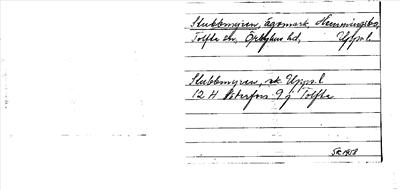 Stubbmyren, ägomark, Hemmingsbo,
Tolfta sn, Örbyhus hd, Upps. l
Stubbmyren, sk Upps. l
12 H Österfors 9 j Tolfta
SK 1958